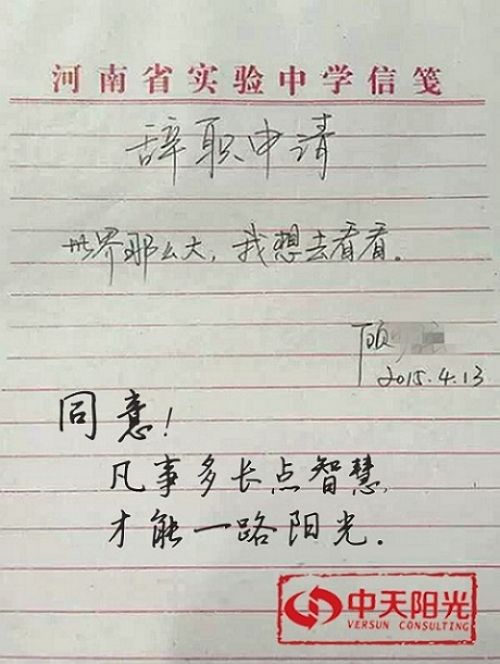 河南省实验中学信笺
辞职申请
世界那么大，我想去看看。
顾
2015.4.13
同意！
凡事多长点智慧，
才能一路阳光．
中天阳光
VERSUN CONSULTING